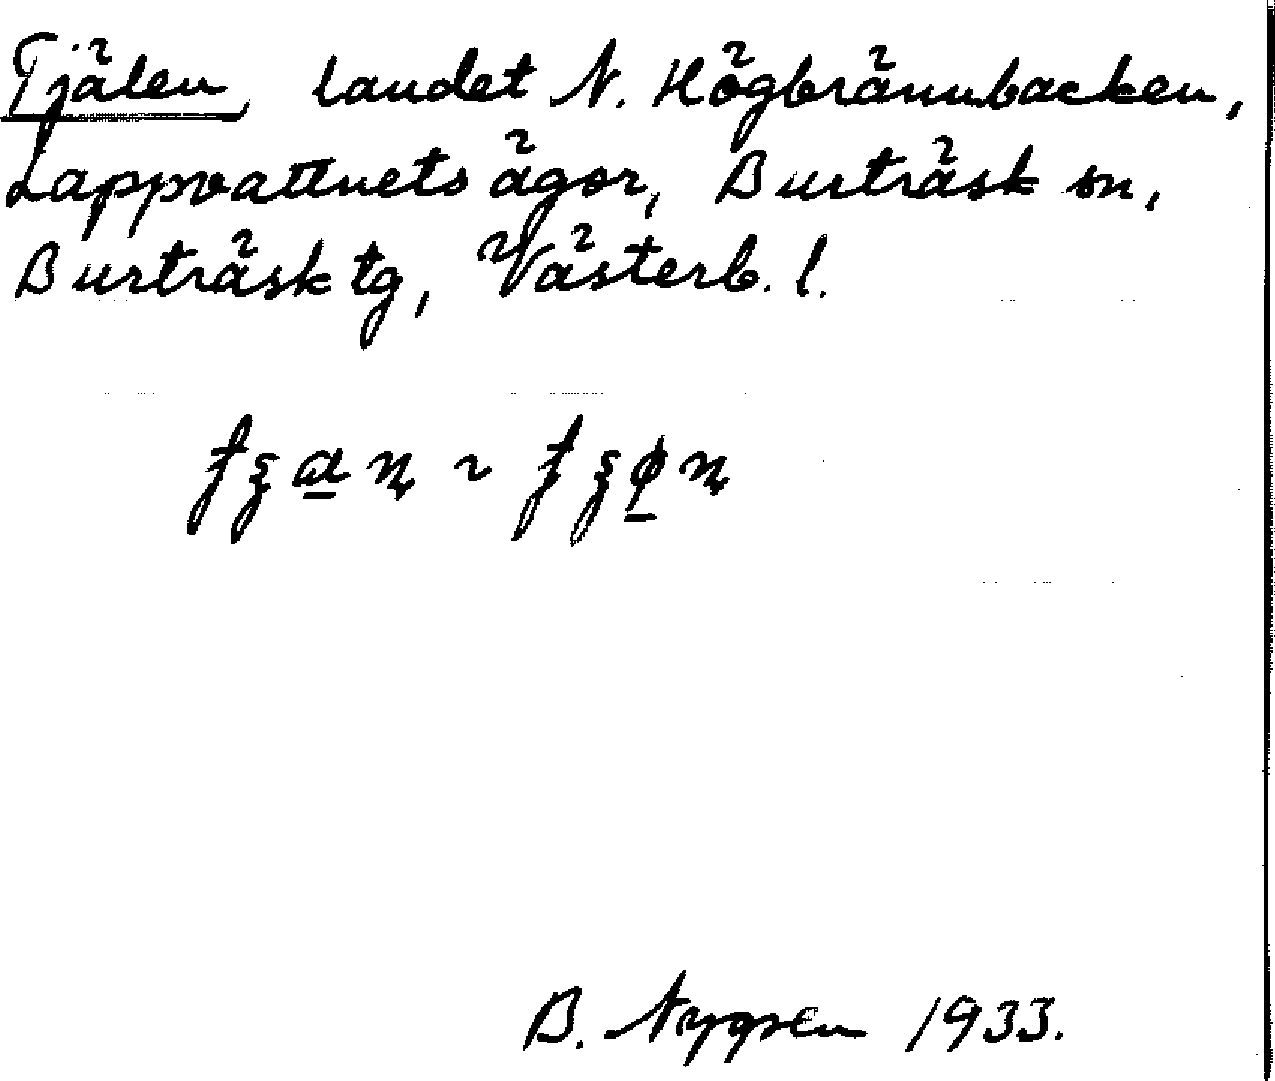 Tjälen, landet N. Högbrännbacken,
Lappvattnets ägor, Burträsk sn,
Burträsk tg, Västerb. l.
B. Nygren 1933.